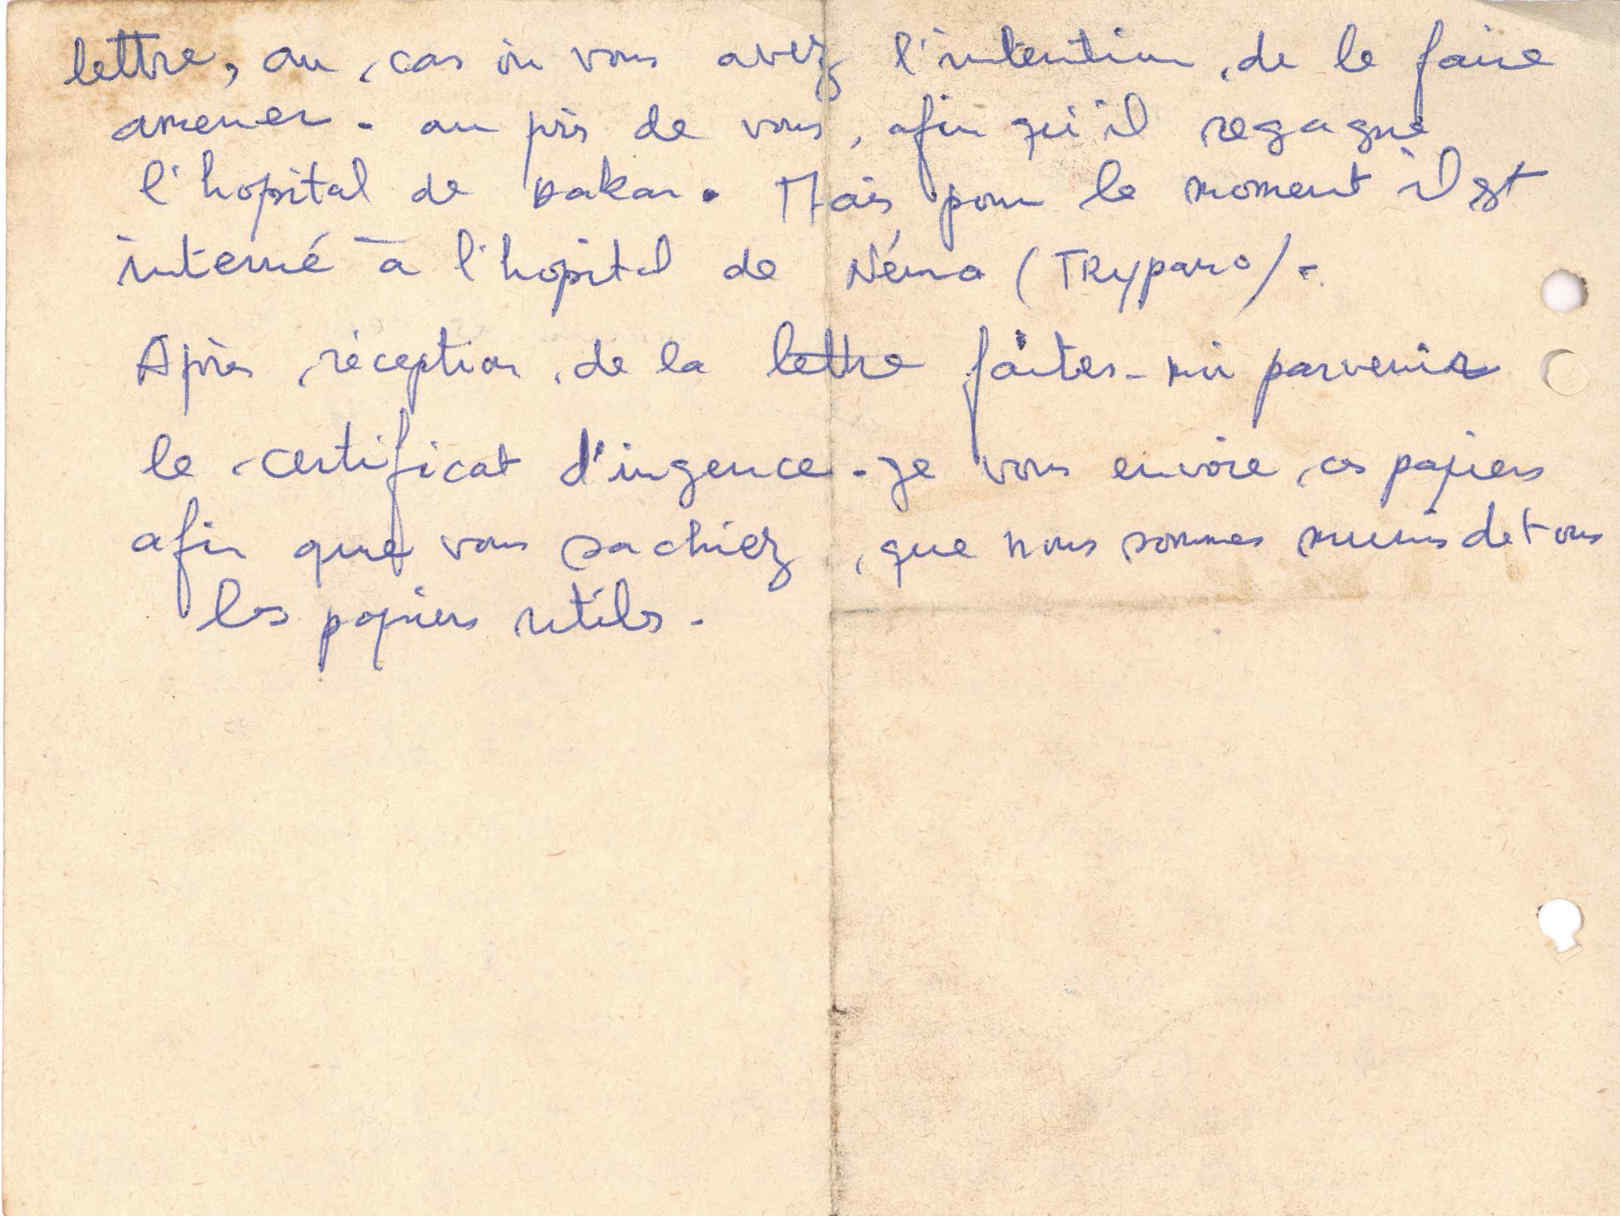 lettre, au cas où vous avez l'intention de le faire
amener - au près de vous, afin qu'il regagne
l'hopital de Dakar. Mais pour le moment il est
interné à l'hopital de Néma (TRypano) -
Après réception de la lettre faites - moi parvenir
le certificat d'ingence - Je vous envoie ces papiers
afin que vous sachiez, que nous sommes munis de tous
les papiers utiles -